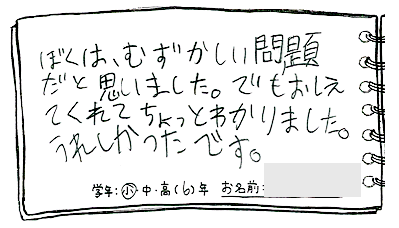 ぼくは、むずかしい問題
だと思いました。でもおしえ
てくれてちょっとわかりました。
うれしかったです。
学年:小・中・高(6)年 お名前: